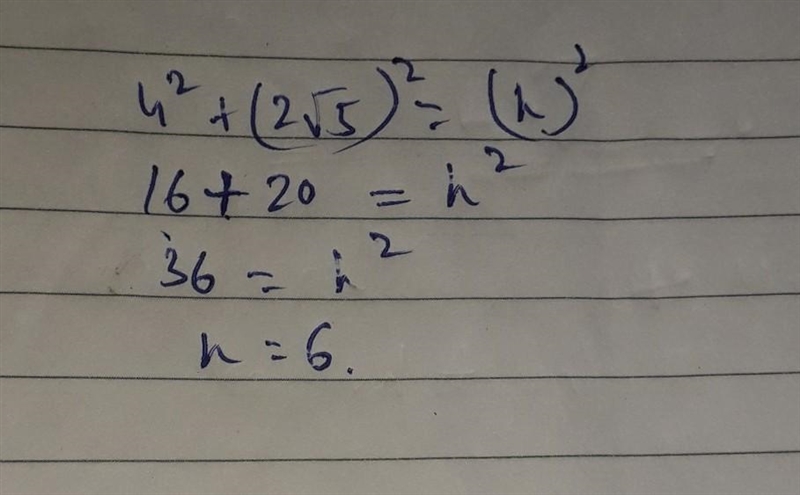 4² + (2√5)² = (h)²
16 + 20 = h²
36 = h²
h = 6.